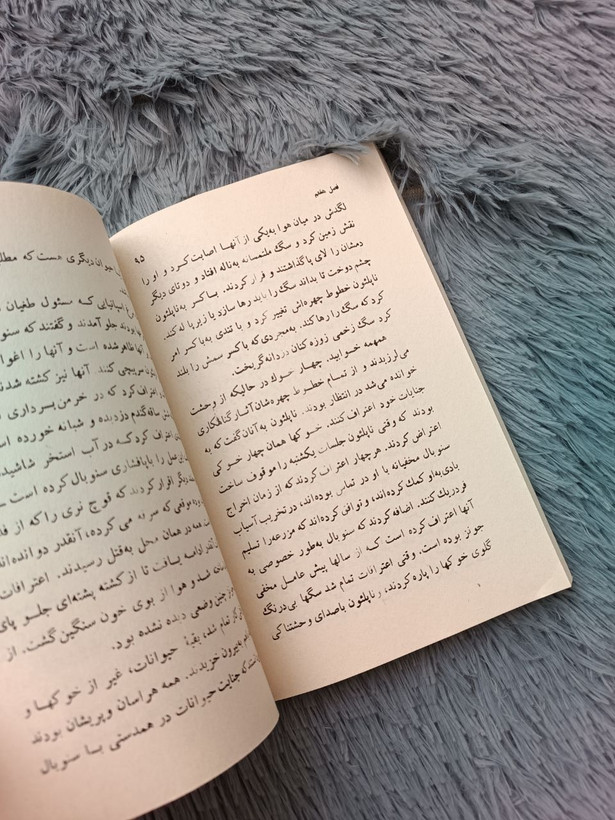 فصل هفتم
۹۵
لگدش در میان هوا به‌یکی از آنهـا اصابت کـرد و او را
نقش زمین کرد و سگ ملتمسانه به‌ناله افتاد و دوتای دیگر
دمشان را لای پا گذاشتند و فرار کردند. بـاکسر به‌ناپلئون
چشم دوخت تا بداند سگ را باید رها سازد یا زیر پا له کند.
ناپلئون خطوط چهره‌اش تغییر کرد و با تندی به‌باکسر امر
کرد که سگ را رها کند. به‌مجردی که باکسر سمش را بلند
کرد سگ زخمی زوزه کنان گریخت.
همهمه خـوابید. چهـار خـوک در حالیکه از وحشت
می‌لرزیدند و از تمـام خطـوط چهره‌شان آثـار گناهکاری
خوانده می‌شد در انتظار بودند. ناپلئون به‌آنان گفت که به
جنایات خود اعتراف کنند. خـوکها همان چهار خـوکی
بودند که وقتی ناپلئون جلسات یکشنبه را موقوف ساخت
اعتراض کردند. هر چهار اعتراف کردند که از زمان اخراج
سنوبال مخفیانه با او در تماس بوده‌اند، در تخریب آسیاب
بادی به‌او کمک کرده‌اند، و توافق کرده‌اند که مزرعه را تسلیم
فردریک کنند. اضافه کردند که سنوبال به‌طور خصوصی به
آنها اعتراف کرده است کـه از سالها پیش عامـل مخفی
جونز بوده است. وقتی اعترافات تمام شد سگها بی‌درنگ
گلوی خوکها را پاره کردند، و ناپلئون با صدای وحشتناکی
دیگری هست که
اسپانیایی کـه مسئول طغیان
بودند جلو آمدند و گفتند که
آنها ظاهر شده است و آنها را اغوا
کنند. آنها نیز کشته شدند
اعتراف کرد که در خرمن
ساقه گندم دزدیده و شبانه خورده
اعتراف کرد کـه در آب استخر
را با پافشاری سنوبال کرده است
دیگر اقرار کردند که قوچ نری را که از
که سرفه می‌کرده، آنقدر دوانده‌اند
همه در همان محل به‌قتل رسیدند. اعترافات
ادامه یـافت تا از کشته پشته‌ای جلـو پای
شد و هوا از بوی خون سنگین گشت. از
چنین وضعی دیده نشده بود.
تمام شد، بقیهٔ حیوانات، غیر از خوکهـا و
بیرون خزیدند. همه هراسان و پریشان بودند
که جنایت حیوانات در همدستی بـا سنوبال